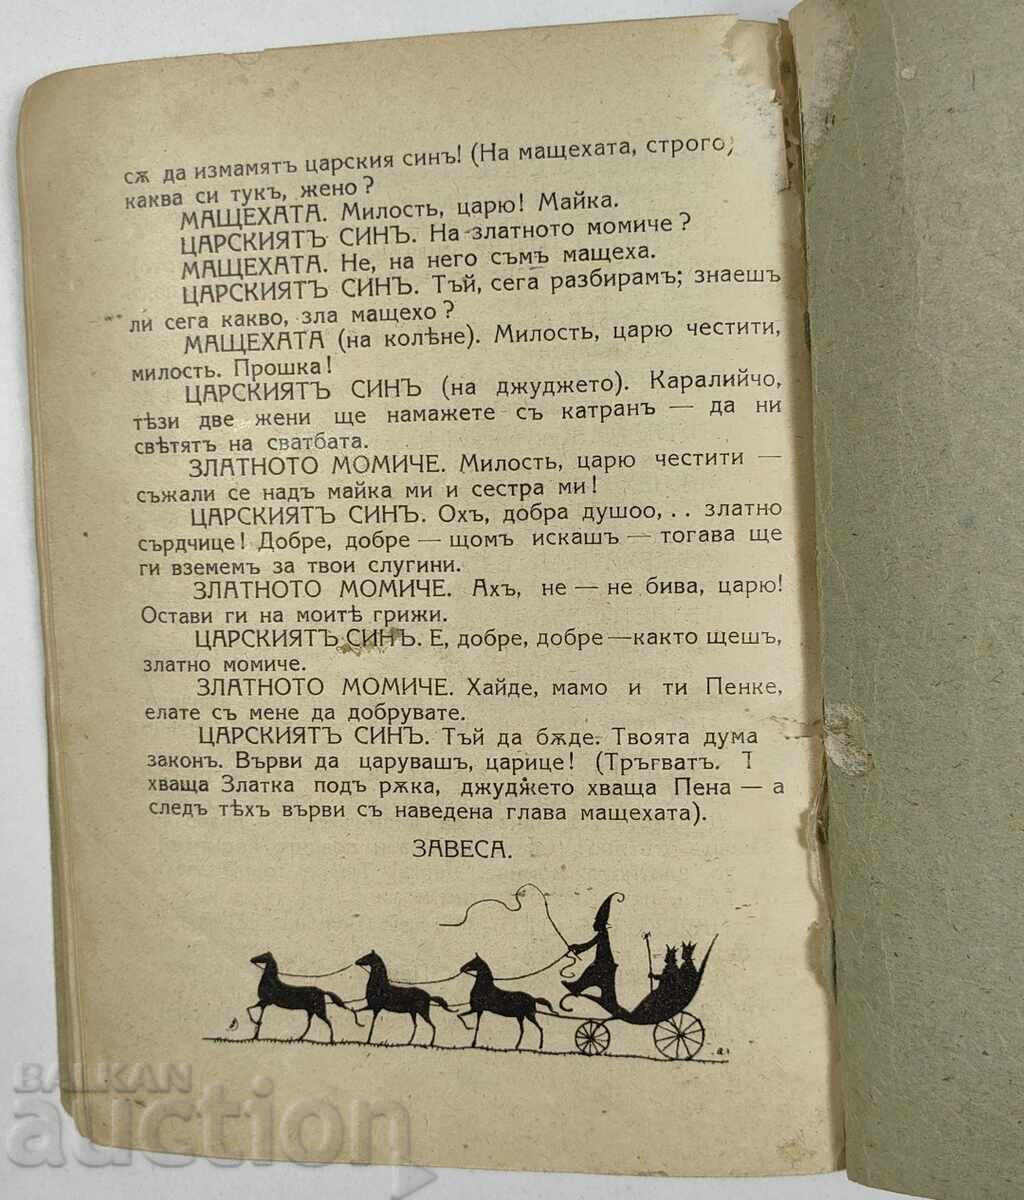 сѫ да измамятъ царския синъ! (На мащехата, строго)
каква си тукъ, жено?
МАЩЕХАТА. Милость, царю! Майка.
ЦАРСКИЯТЪ СИНЪ. На златното момиче?
МАЩЕХАТА. Не, на него съмъ мащеха.
ЦАРСКИЯТЪ СИНЪ. Тъй, сега разбирамъ; знаешъ
ли сега какво, зла мащехо?
МАЩЕХАТА (на колѣне). Милость, царю честити,
милость. Прошка!
ЦАРСКИЯТЪ СИНЪ (на джуджето). Каралийчо,
тѣзи две жени ще намажете съ катранъ — да ни
свѣтятъ на сватбата.
ЗЛАТНОТО МОМИЧЕ. Милость, царю честити —
съжали се надъ майка ми и сестра ми!
ЦАРСКИЯТЪ СИНЪ. Охъ, добра душоо, .. златно
сърдчице! Добре, добре — щомъ искашъ — тогава ще
ги вземемъ за твои слугини.
ЗЛАТНОТО МОМИЧЕ. Ахъ, не — не бива, царю!
Остави ги на моитѣ грижи.
ЦАРСКИЯТЪ СИНЪ. Е, добре, добре — както щешъ,
златно момиче.
ЗЛАТНОТО МОМИЧЕ. Хайде, мамо и ти Пенке,
елате съ мене да добрувате.
ЦАРСКИЯТЪ СИНЪ. Тъй да бѫде. Твоята дума
законъ. Върви да царувашъ, царице! (Тръгватъ.
хваща Златка подъ рѫка, джуджето хваща Пена — а
следъ тѣхъ върви съ наведена глава мащехата).
ЗАВЕСА.
BALKAN
auction